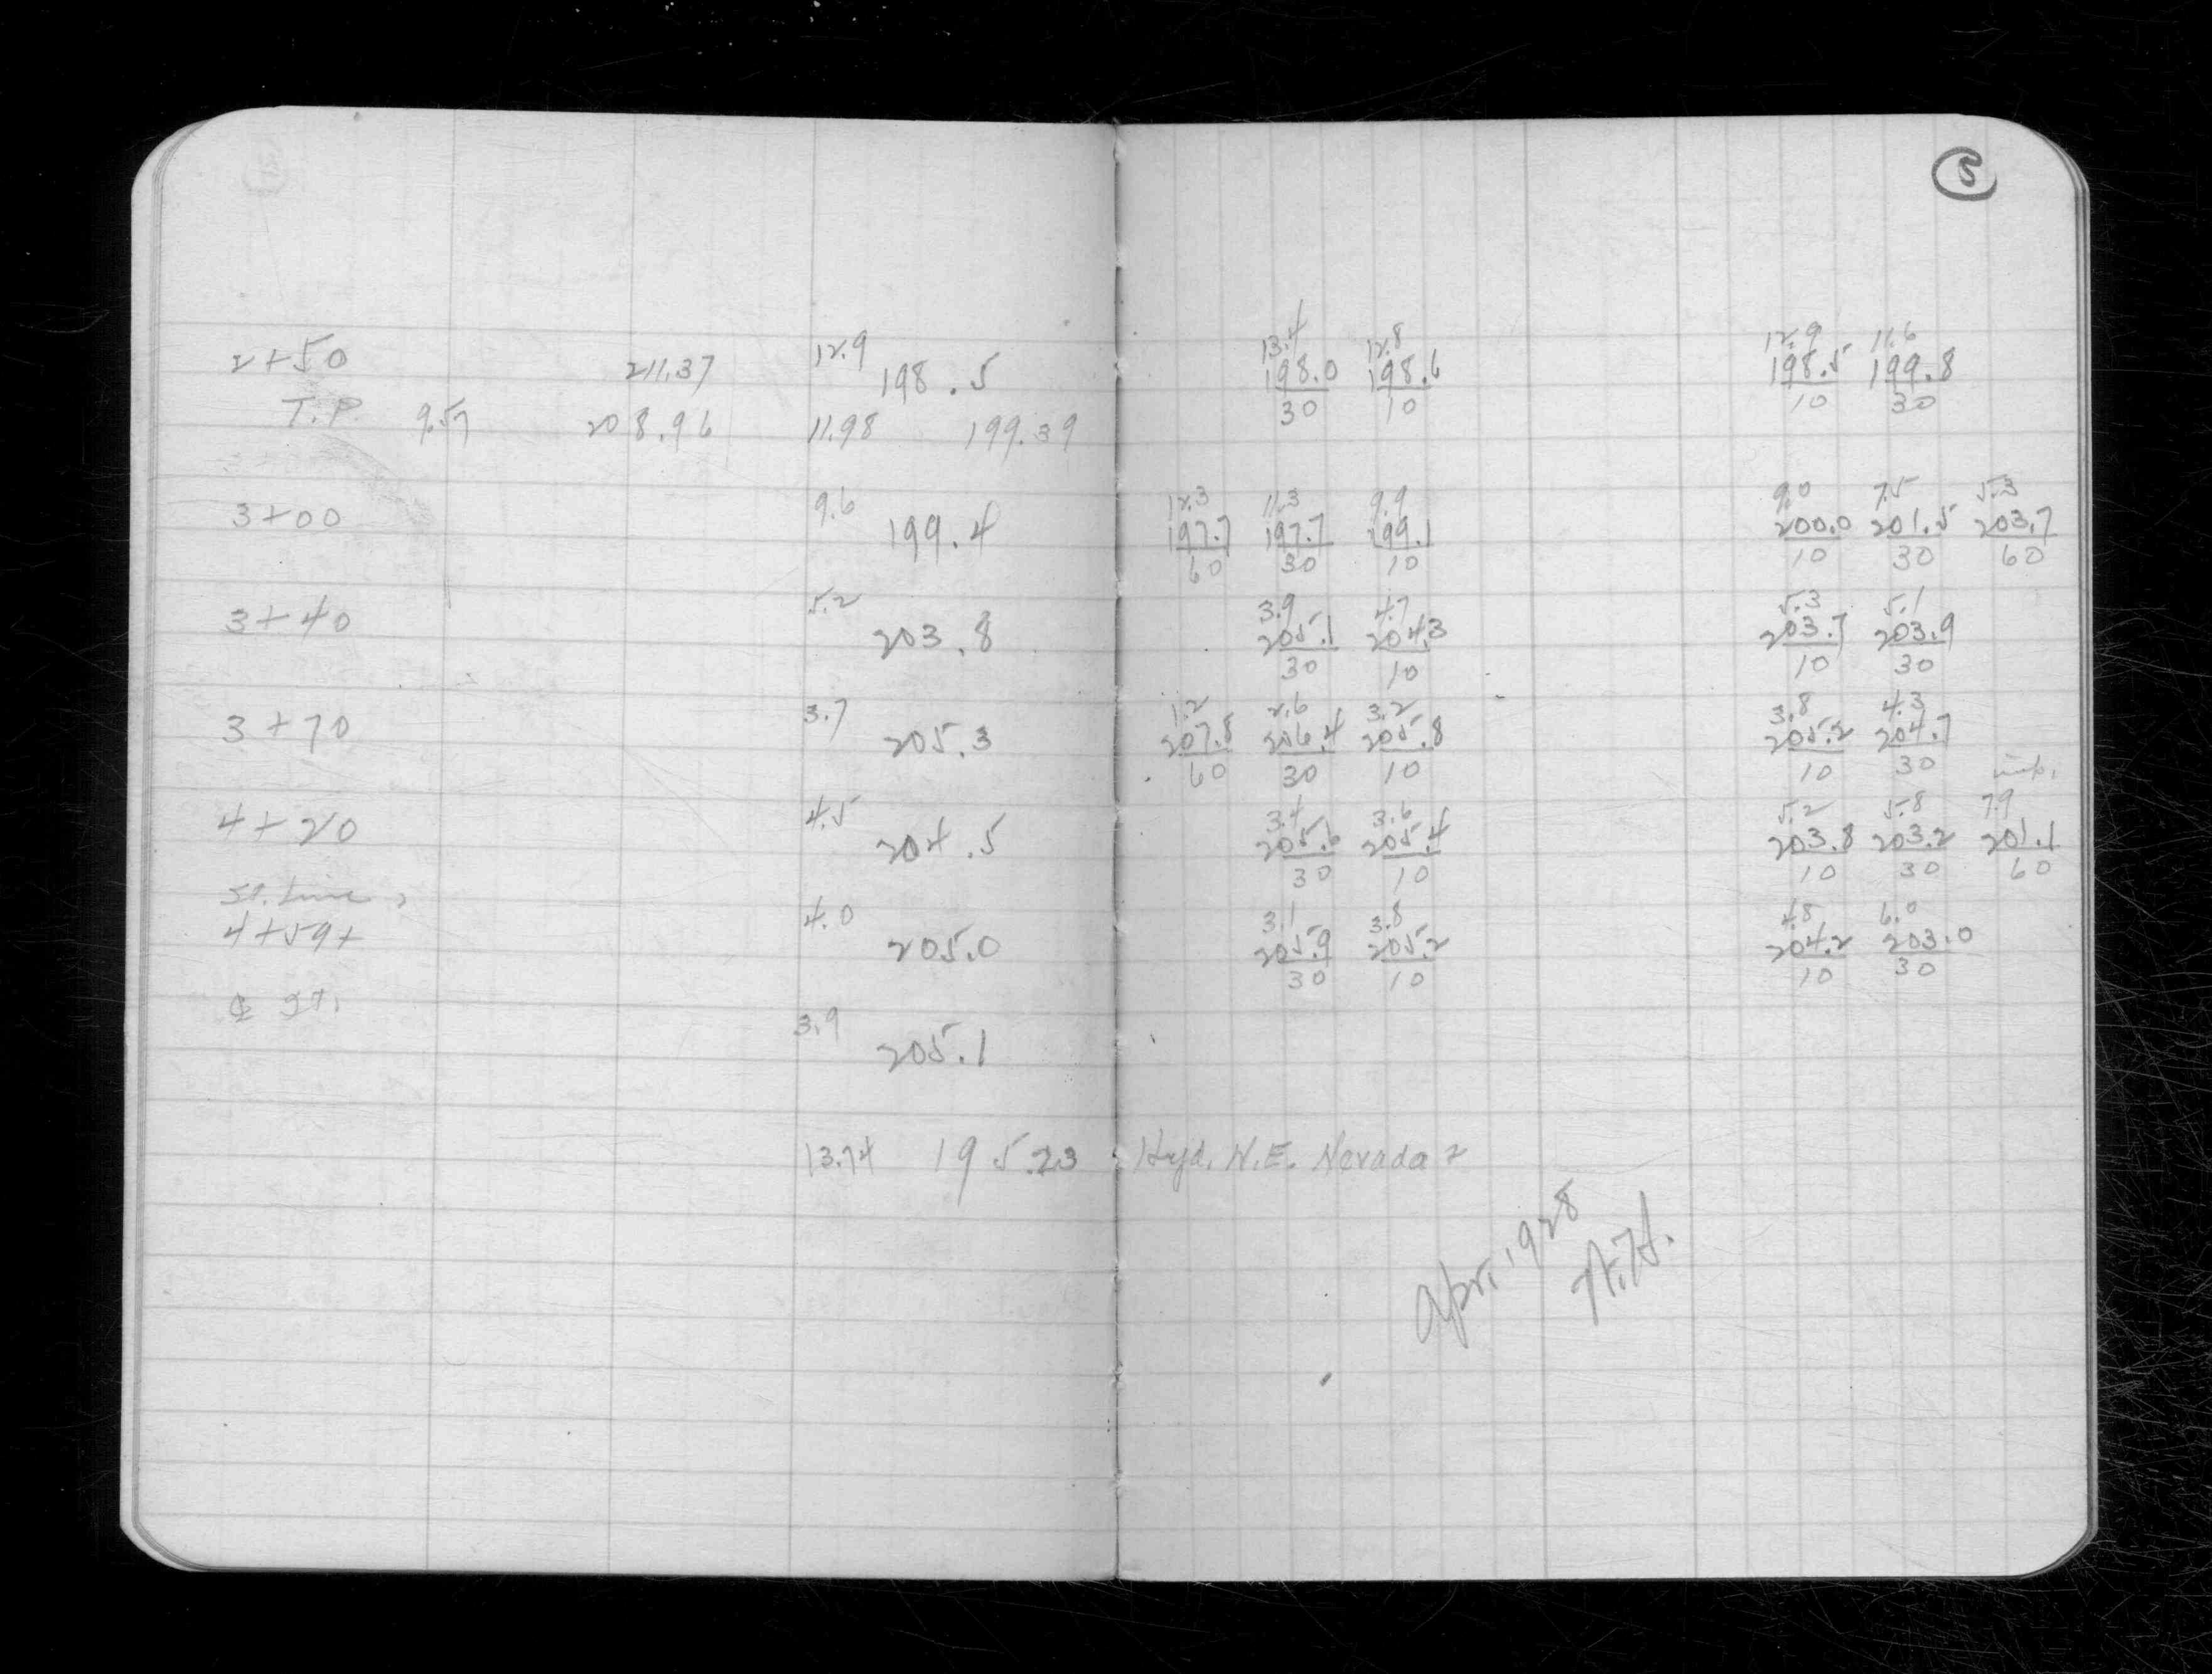 5
12.9 13.4 12.8 12.9 11.6
2+50 211.37 198.5 198.0 198.6 198.5 199.8
30 10 10 30
T.P. 9.57 208.96 11.98 199.39
9.6 12.3 11.3 9.9 9.0 7.5 5.3
3+00 199.4 197.7 197.7 199.1 200.0 201.5 203.7
60 30 10 10 30 60
5.2 3.9 4.7 5.3 5.1
3+40 203.8 205.1 204.3 203.7 203.9
30 10 10 30
3.7 1.2 2.6 3.2 3.8 4.3
3+70 205.3 207.8 206.4 205.8 205.2 204.7
60 30 10 10 30
4.5 3.4 3.6 5.2 5.8 7.9
4+20 204.5 205.6 205.4 203.8 203.2 201.1
30 10 10 30 60
St. Line
4.0 3.1 3.8 4.8 6.0
4+59+ 205.0 205.9 205.2 204.2 203.0
30 10 10 30
℄ St.
3.9
205.1
13.74 195.23 Hyd. N.E. Nevada 2
Apr. 1928